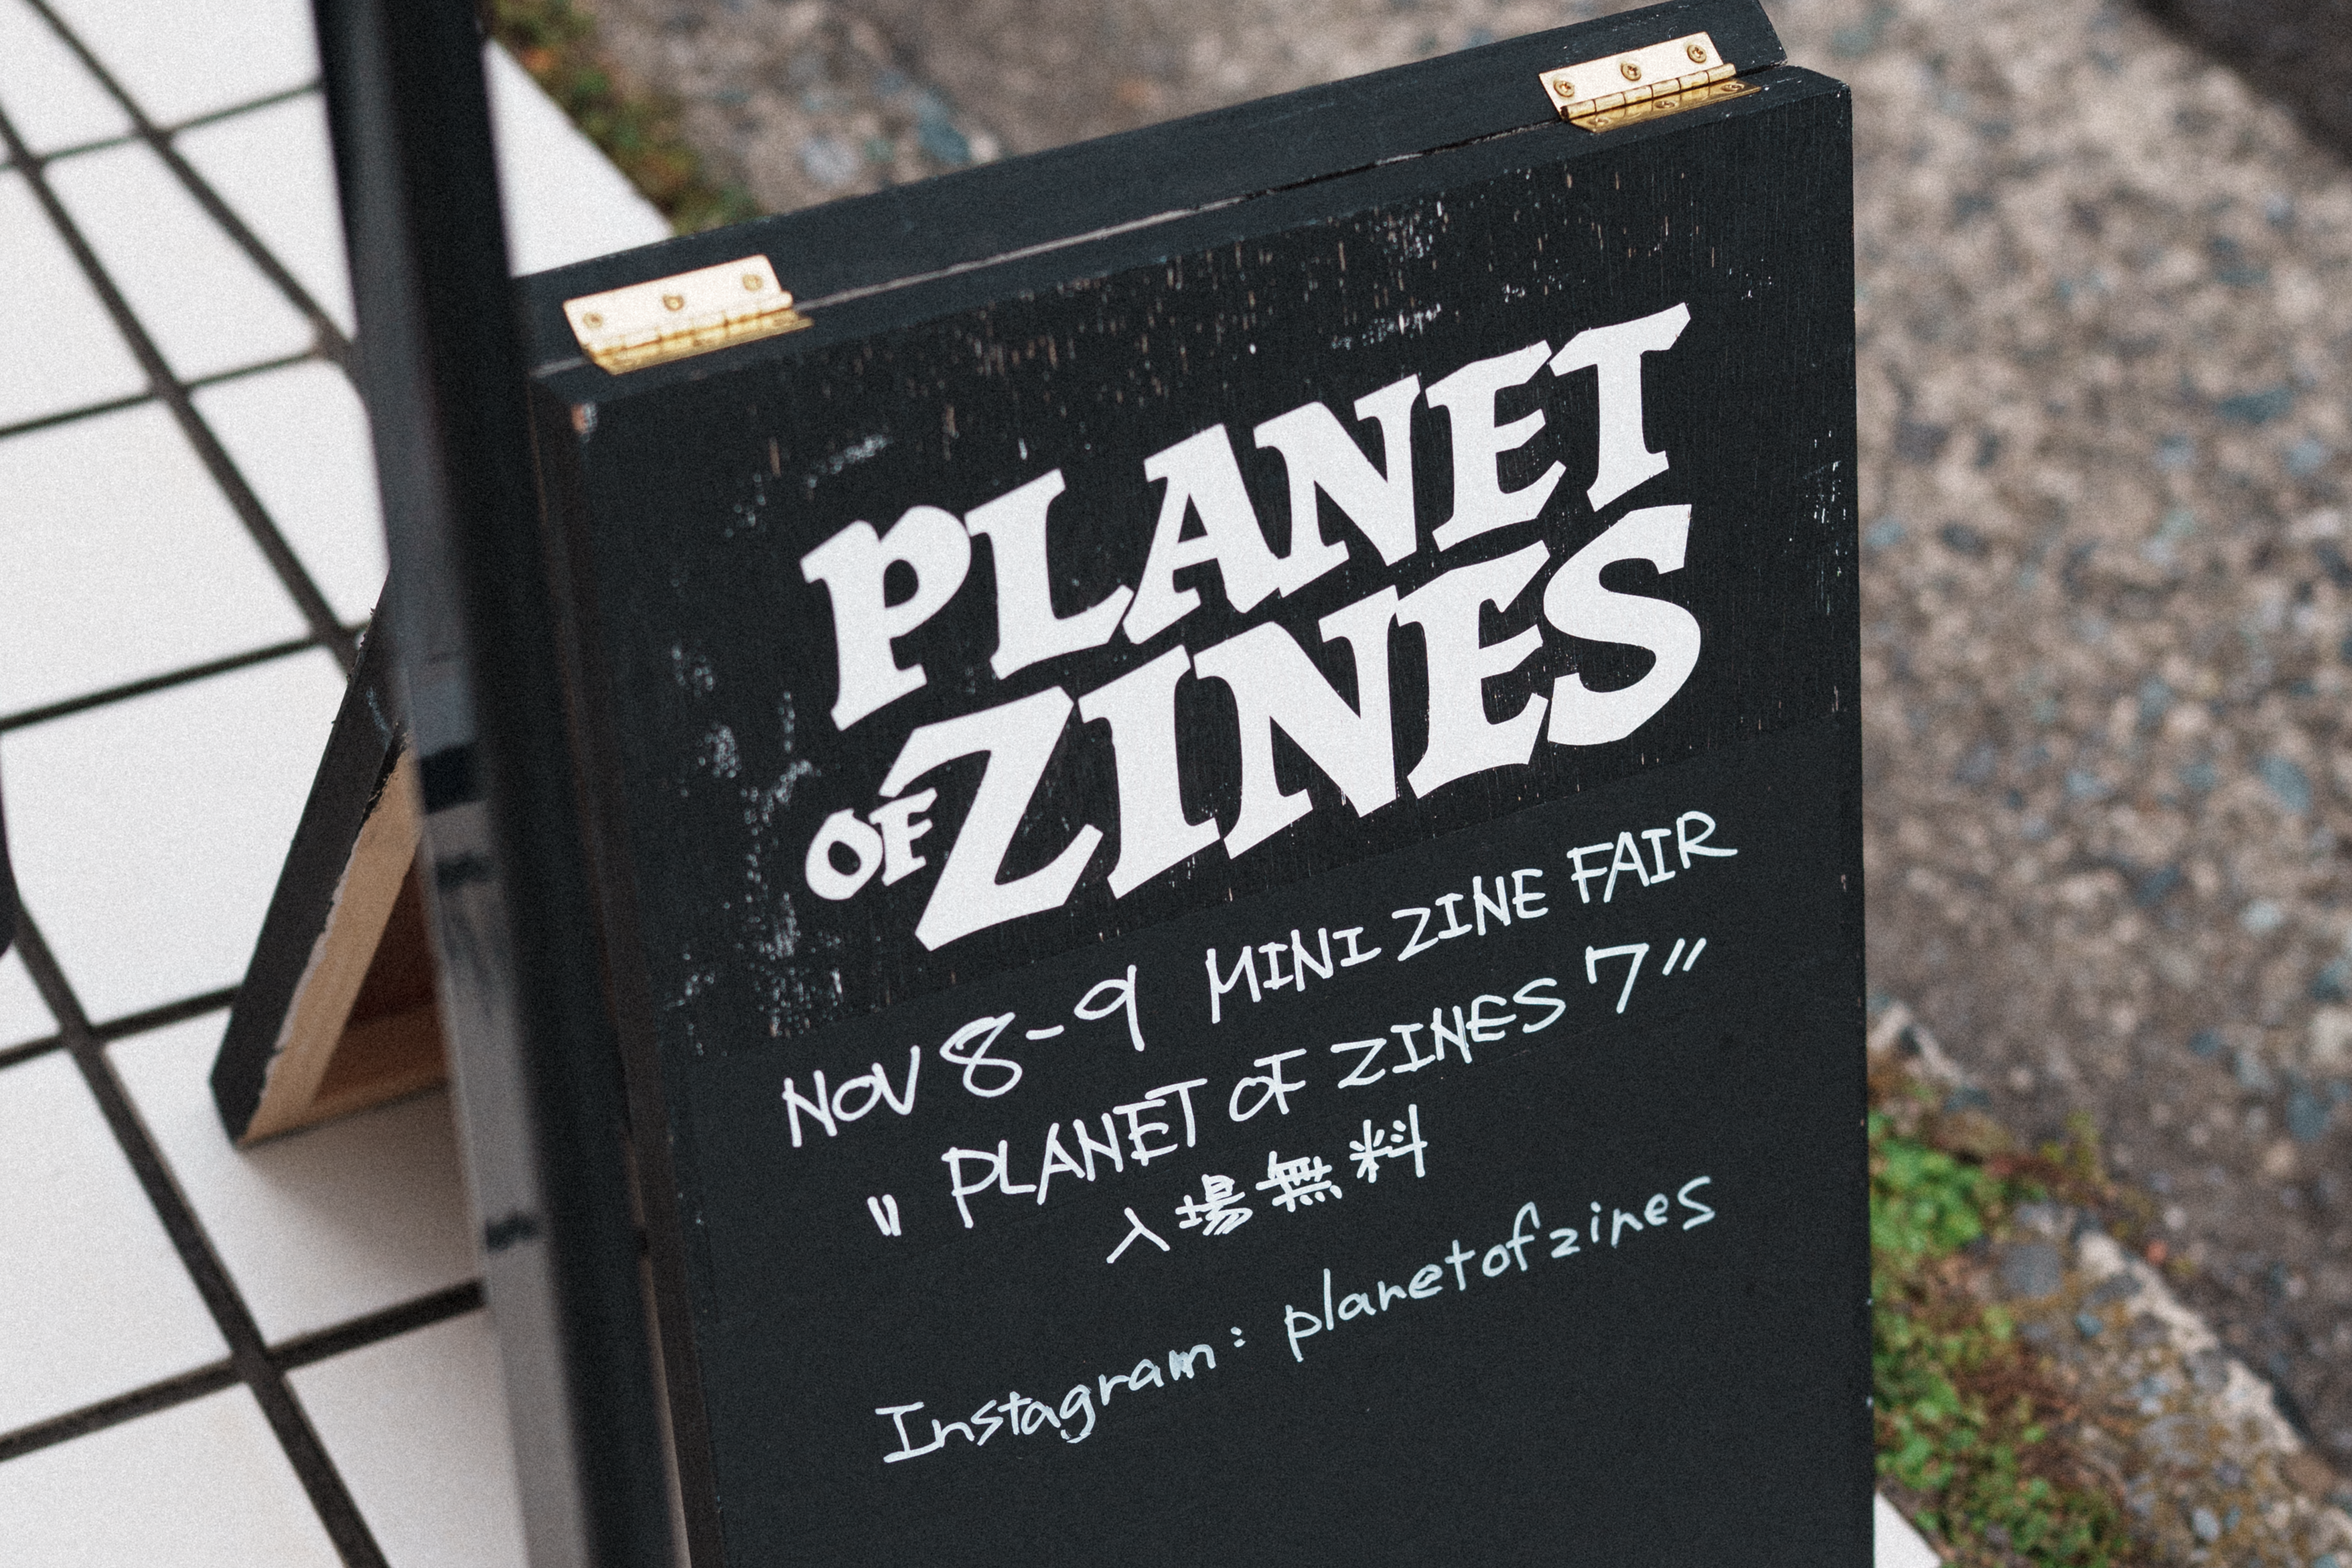 PLANET
OF ZINES
NOV 8-9 MINI ZINE FAIR
" PLANET OF ZINES 7"
入場無料
Instagram: planetofzines